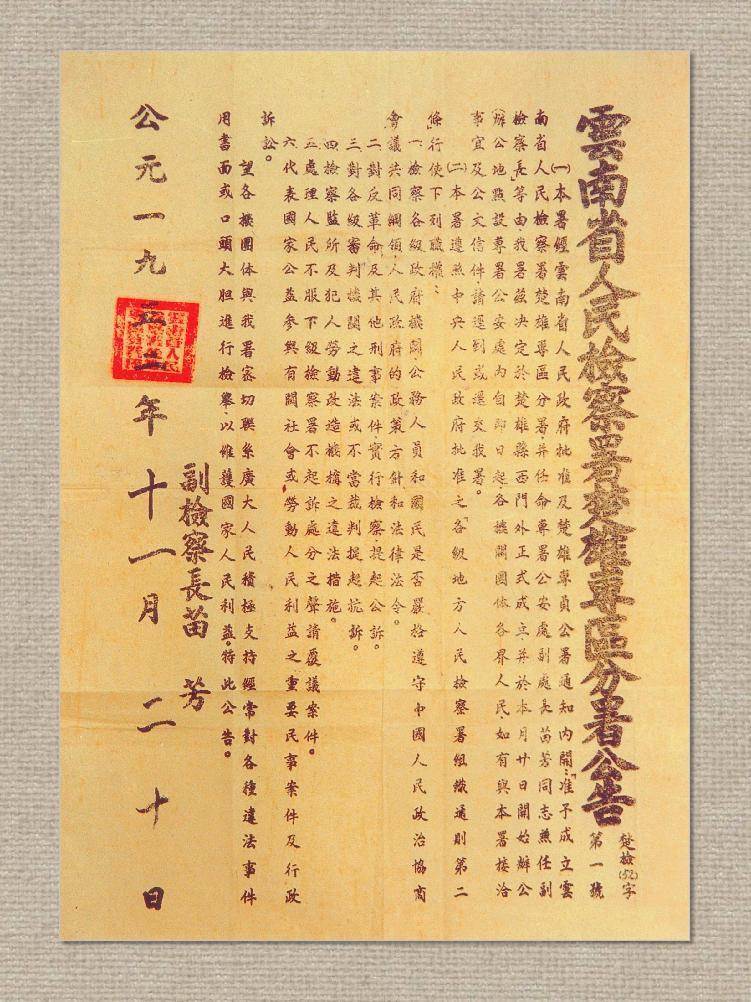 雲南省人民檢察署楚雄專區分署公告
楚檢(52)字
第一號
㈠本署經雲南省人民政府批准及楚雄專員公署通知內開：「准予成立雲
南省人民檢察署楚雄專區分署，并任命專署公安處副處長苗芳同志兼任副
檢察長」等由我署茲決定於楚雄縣西門外正式成立并於本月廿日開始辦公
（辦公地點設專署公安處內）自即日起各機關團体各界人民，如有與本署接洽
事宜及公文信件，請逕到或逕交我署。
㈡本署遵照中央人民政府批准之「各級地方人民檢察署組織通則第二
條」行使下列職權：
一、檢察各級政府機關公務人員和國民是否嚴格遵守中國人民政治協商
會議共同綱領，人民政府的政策方針和法律法令。
二、對反革命及其他刑事案件，實行檢察，提起公訴。
三、對各級審判機關之違法或不當裁判提起抗訴。
四、檢察監所及犯人勞動改造機構之違法措施。
五、處理人民不服下級檢察署不起訴處分之聲請覆議案件。
六、代表國家公益參與有關社會或勞動人民利益之重要民事案件及行政
訴訟。
望各機團体與我署密切聯系廣大人民積極支持經常對各種違法事件
用書面或口頭大胆進行檢舉，以維護國家人民利益。特此公告。
副檢察長苗 芳
公元一九五二年十一月二十日